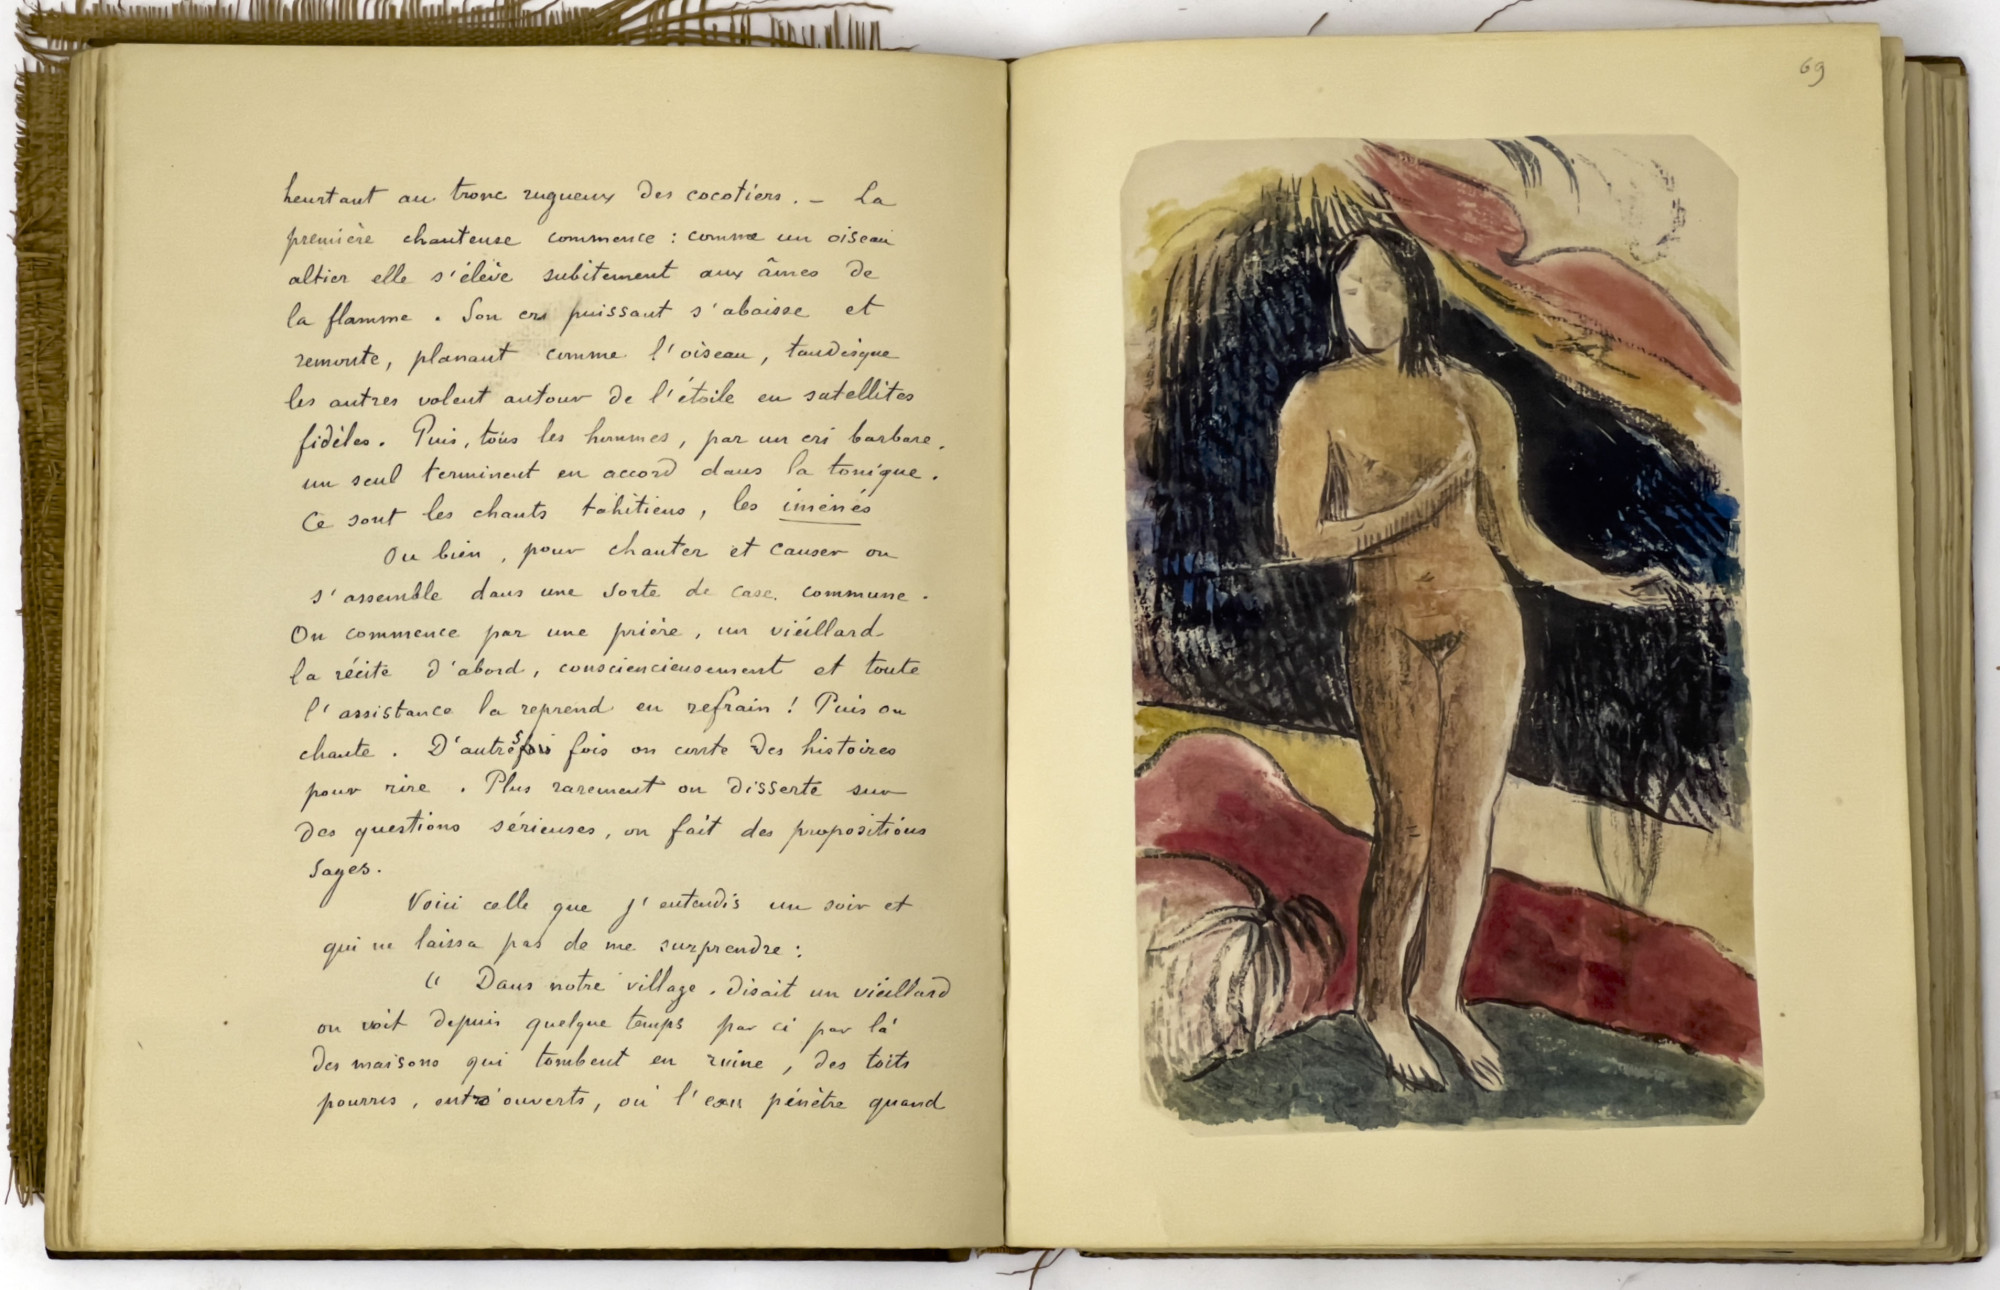 heurtant au tronc rugueux des cocotiers. – La
première chanteuse commence : comme un oiseau
altier elle s'élève subitement aux âmes de
la flamme. Son cri puissant s'abaisse et
remonte, planant comme l'oiseau, tandisque
les autres volent autour de l'étoile en satellites
fidèles. Puis, tous les hommes, par un cri barbare,
un seul terminent en accord dans la tonique.
Ce sont les chants tahitiens, les iménés
Ou bien, pour chanter et causer on
s'assemble dans une sorte de case commune.
On commence par une prière, un vieillard
la récite d'abord, consciencieusement et toute
l'assistance la reprend en refrain ! Puis on
chante. D'autres fois on conte des histoires
pour rire. Plus rarement on disserte sur
des questions sérieuses, on fait des propositions
sages.
Voici celle que j'entendis un soir et
qui ne laissa pas de me surprendre :
" Dans notre village, disait un vieillard
on voit depuis quelque temps par ci par là
des maisons qui tombent en ruine, des toits
pourris, entr'ouverts, où l'eau pénètre quand
69